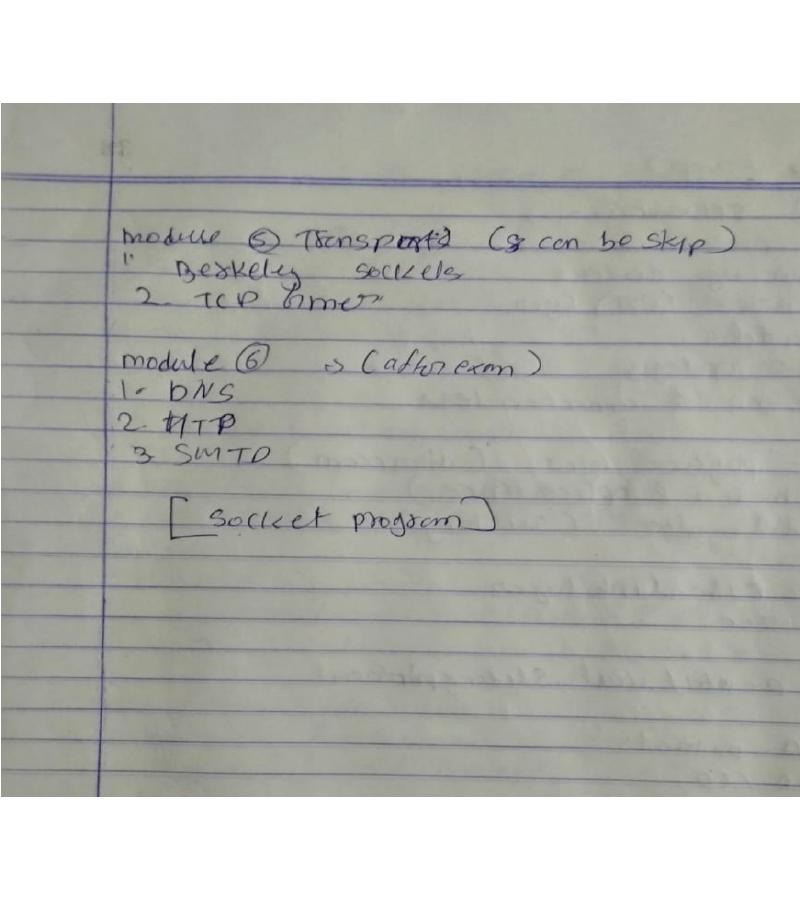 module ⑤ Transport (can be skip)
1. Berkeley sockets
2. TCP timer
module ⑥ → (after exam)
1. DNS
2. HTTP
3. SMTP
[socket program]